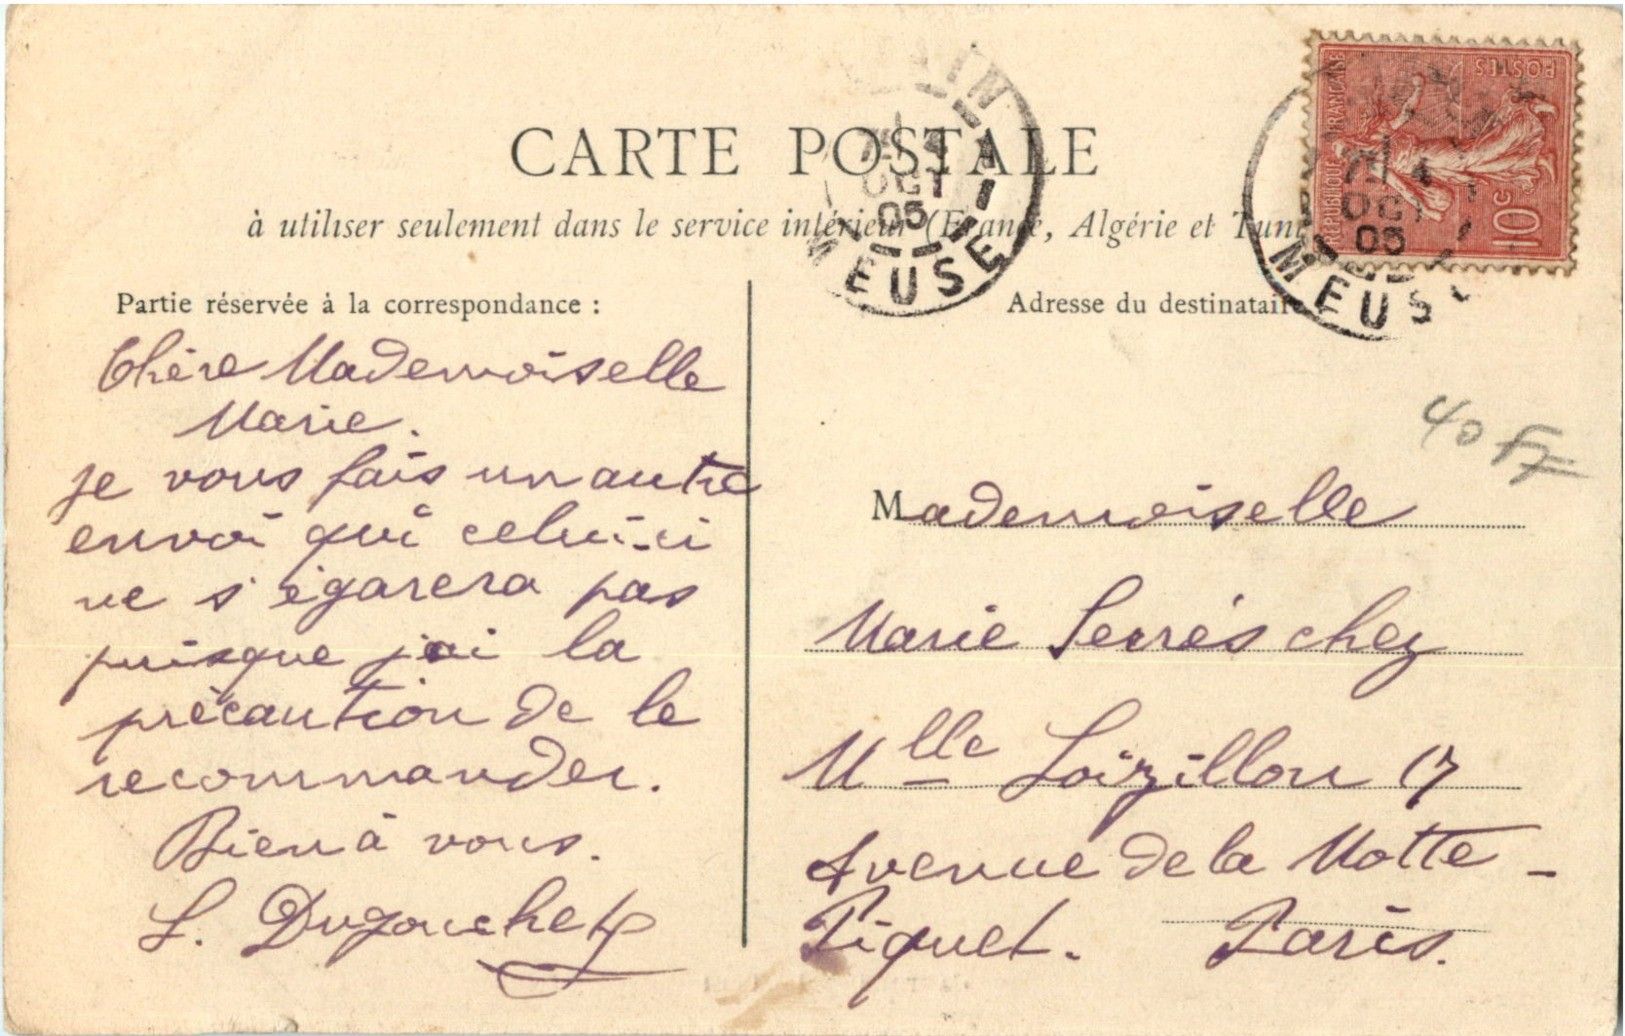 CARTE POSTALE
à utiliser seulement dans le service intérieur (France, Algérie et Tuni
Partie réservée à la correspondance :
Chère Mademoiselle
Marie.
je vous fais un autre
envoi qui celui-ci
ne s'égarera pas
puisque j'ai la
précaution de le
recommander.
Bien à vous.
L. Dugouchet
Adresse du destinataire
Mademoiselle
Marie Serrés chez
Mlle Loizillon 17
Avenue de la Motte-
Piquet. Paris.
40 F
OCT
05
MEUSE
REPUBLIQUE FRANÇAISE
POSTES
10c
OCT
05
MEUS